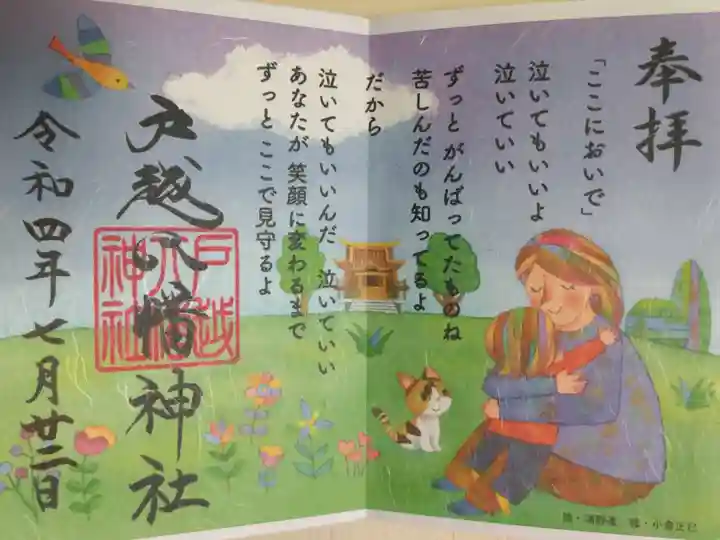 奉拝
「ここにおいで」
泣いてもいいよ
泣いていい
ずっと がんばってたものね
苦しんだのも知ってるよ
だから
泣いてもいいんだ 泣いていい
あなたが 笑顔に変わるまで
ずっと ここで見守るよ
戸越八幡神社
戸越
八幡
神社
令和四年七月廿二日
小倉正巳